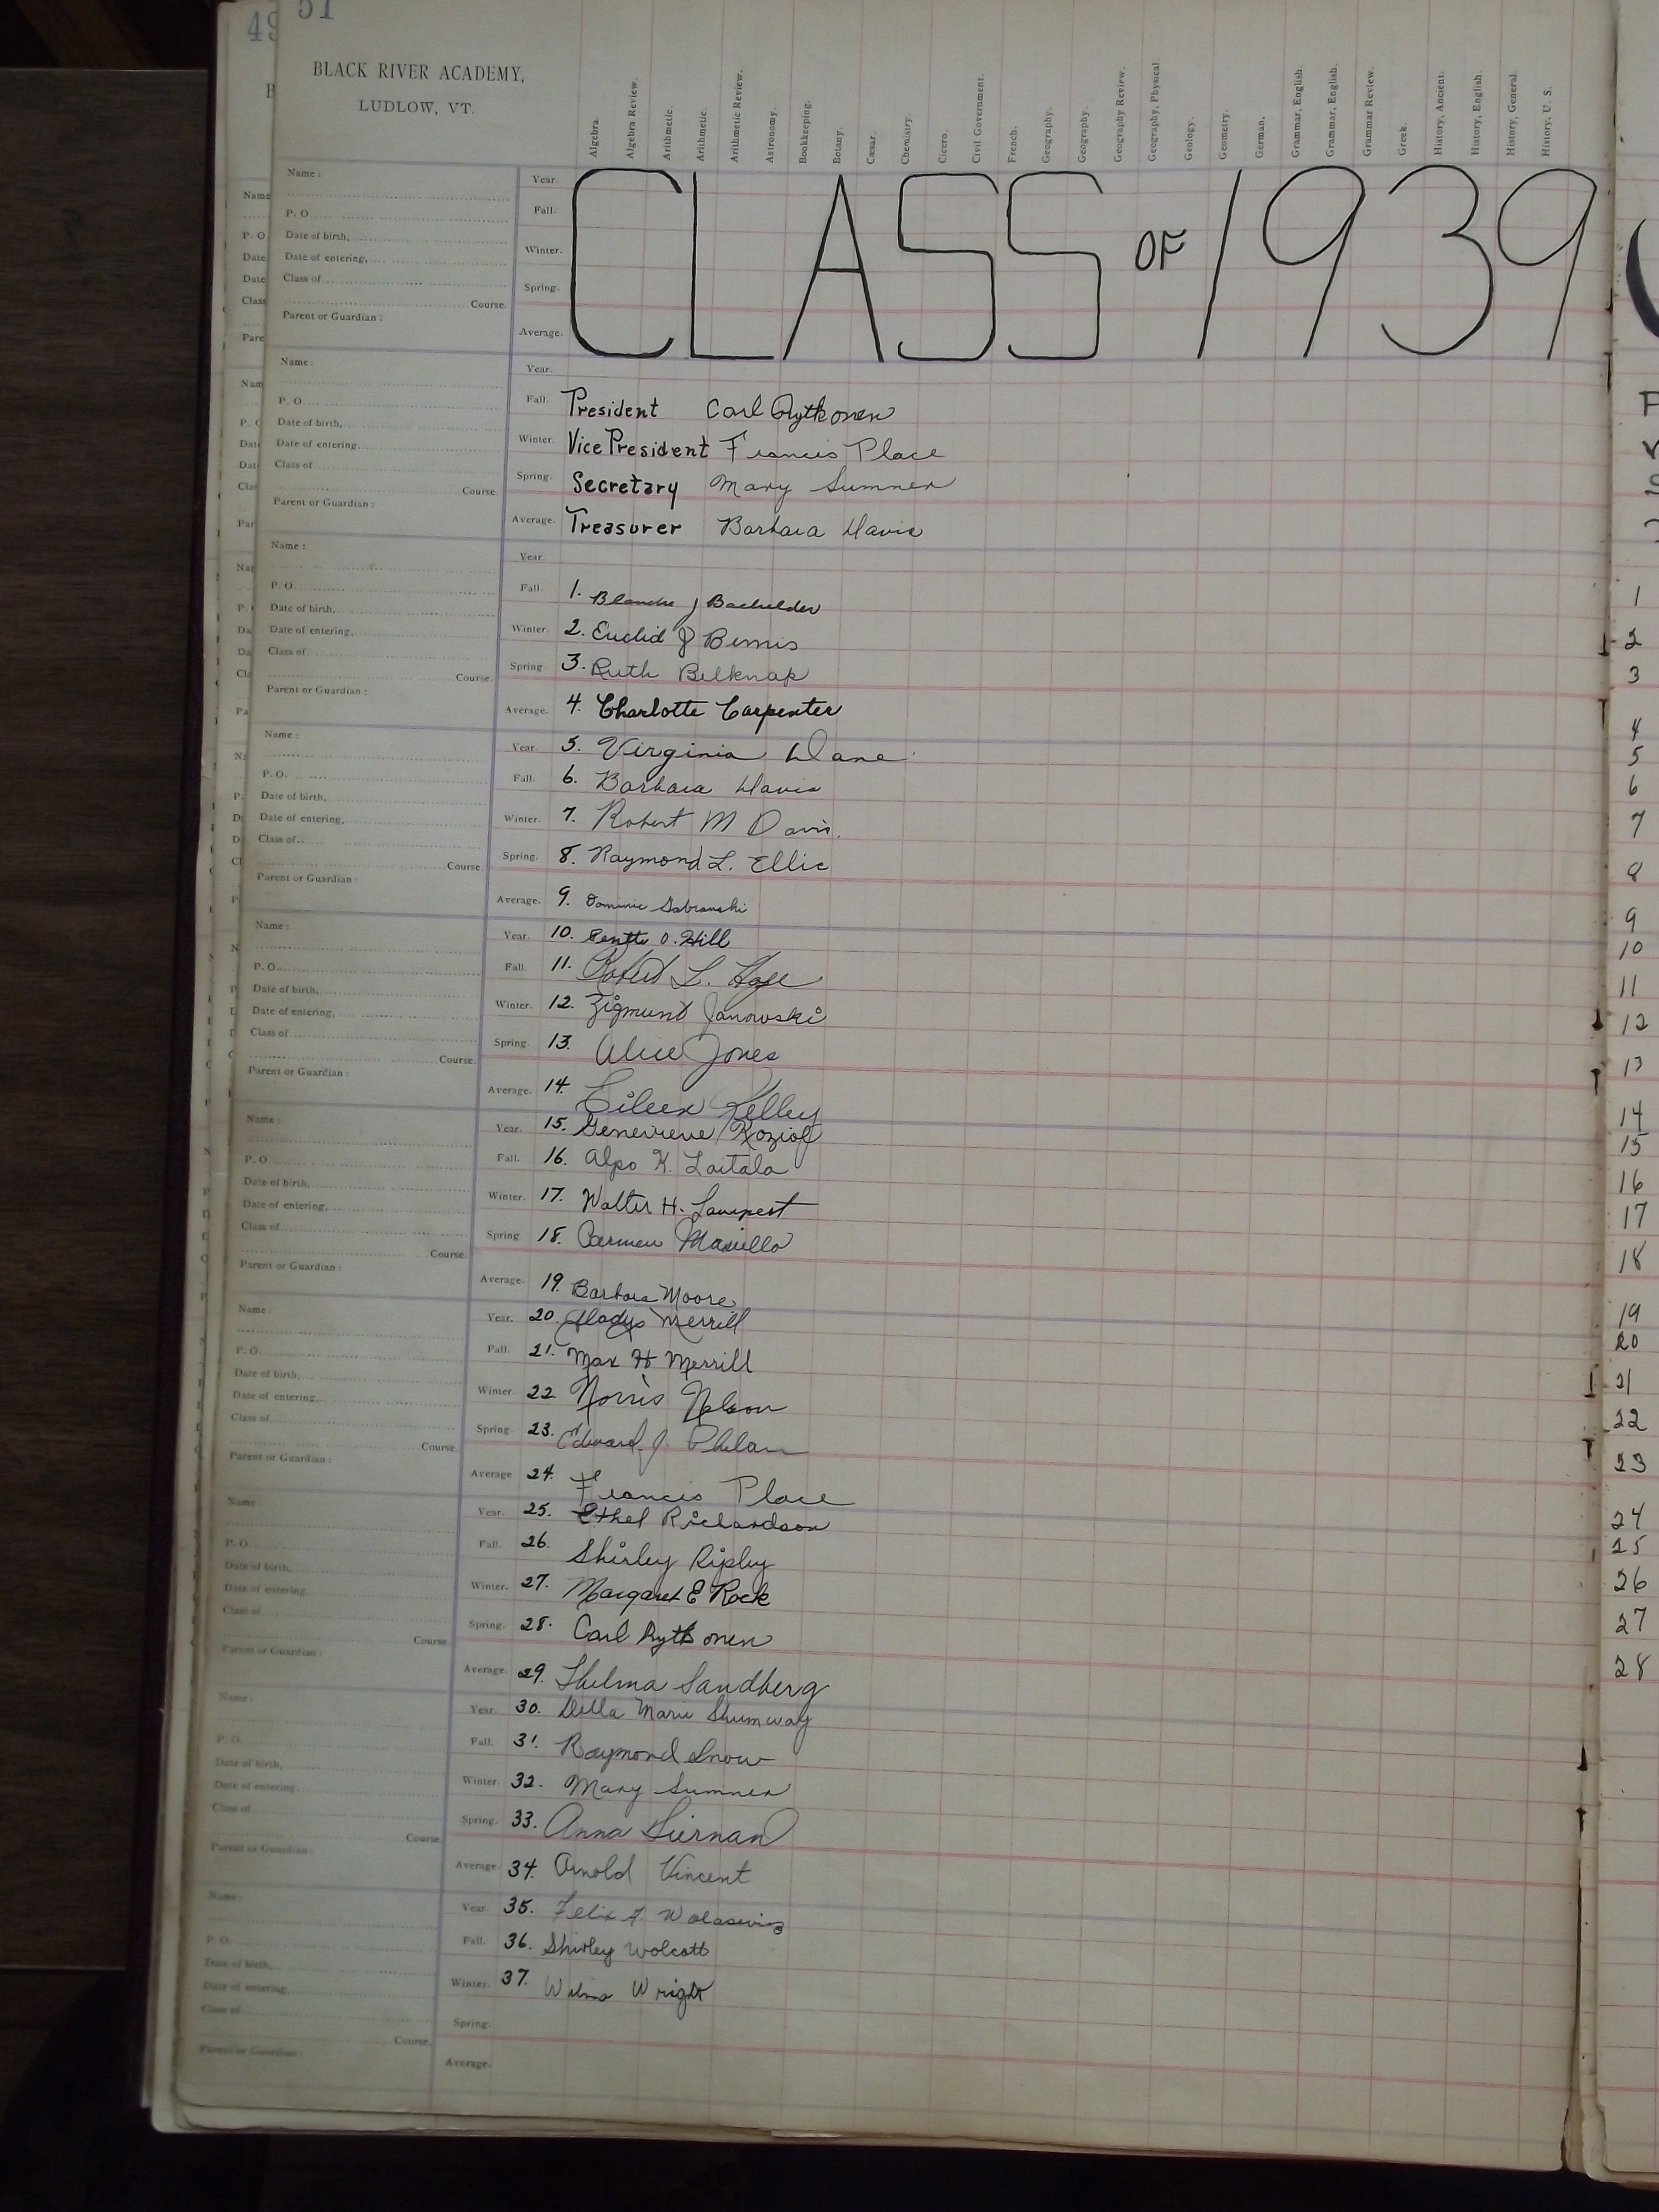 51
49
BLACK RIVER ACADEMY,
LUDLOW, VT.
Algebra.
Algebra Review.
Arithmetic.
Arithmetic.
Arithmetic Review.
Astronomy.
Bookkeeping.
Botany.
Cæsar.
Chemistry.
Cicero.
Civil Government.
French.
Geography.
Geography.
Geography Review.
Geography, Physical.
Geology.
Geometry.
German.
Grammar, English.
Grammar, English.
Grammar Review.
Greek.
History, Ancient.
History, English.
History, General.
History, U. S.
Name:
P. O.
Date of birth,
Date of entering,
Class of
Course.
Parent or Guardian:
Year.
Fall.
Winter.
Spring.
Average.
CLASS OF 1939
President Carl Rytkonen
Vice President Francis Place
Secretary Mary Sumner
Treasurer Barbara Davis
1. Blanche J Bachelder
2. Euclid J Bemis
3. Ruth Belknap
4. Charlotte Carpenter
5. Virginia Dane
6. Barbara Davis
7. Robert M Davis.
8. Raymond L. Ellis
9. Dominic
10. O. Hill
11. Robert L.
12. Zigmund Janowski
13. Alice Jones
14. Eileen Kelley
15. Genevieve Koziol
16. Alpo K. Laitala
17. Walter H.
18. Carmen Masiello
19. Barbara Moore
20. Gladys Merrill
21. Max H Merrill
22. Norris Nelson
23. Edward J. Phelan
24. Francis Place
25. Ethel Richardson
26. Shirley Ripley
27. Margaret E Rock
28. Carl Rytkonen
29. Thelma Sandberg
30. Della Marie Shumway
31. Raymond Snow
32. Mary Sumner
33. Anna
34. Arnold Vincent
35. Felix
36. Shirley Wolcott
37. Wilma Wright
1
2
3
4
5
6
7
8
9
10
11
12
13
14
15
16
17
18
19
20
21
22
23
24
25
26
27
28